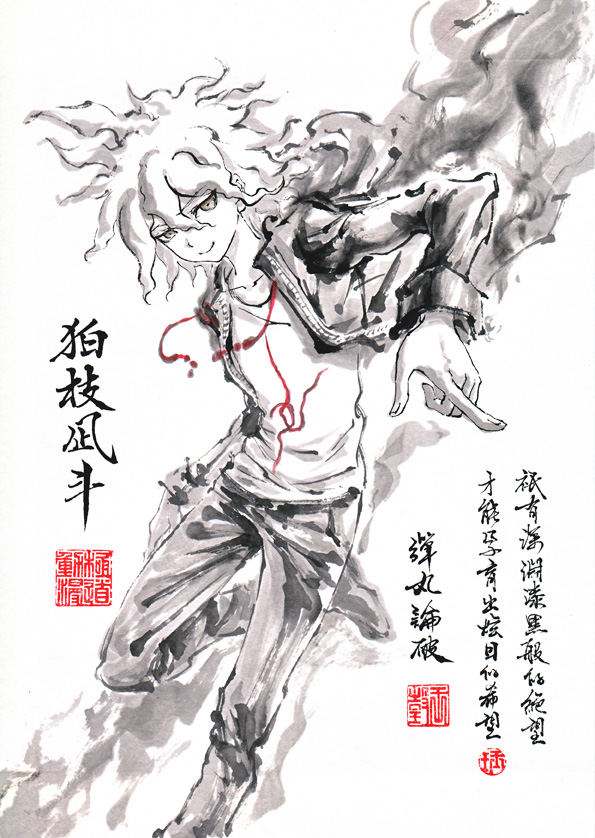 祇有深淵漆黑般的絕望
才能孕育出炫目的希望
彈丸論破
狛枝凪斗